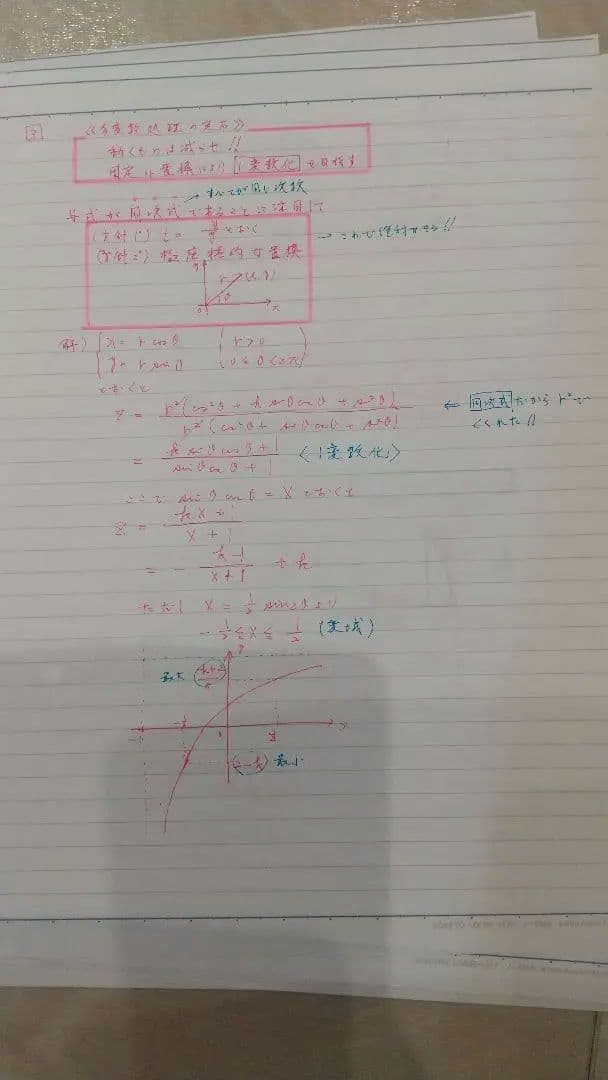 3 《多変数処理の定石》
動くものは減らせ!!
固定 or 置換により 1変数化 を目指す
→ すべてが同じ次数
与式が同次式であることに注目して
(方針1°) t = y/x とおく
(方針2°) 極座標的な置換 → これで絶対できる!!
y
r (x, y)
θ
0 x
解) { x = r cosθ ( r > 0
{ y = r sinθ ( 0 ≦ θ < 2π )
とおくと
z = r²(cos²θ + k sinθcosθ + sin²θ) / r²(cos²θ + sinθcosθ + sin²θ) ← 同次式 だから r² で
くくれた!!
= k sinθcosθ + 1 / sinθcosθ + 1 〈1変数化〉
ここで sinθcosθ = X とおくと
z = kX + 1 / X + 1
= - k-1 / X+1 + k
ただし X = 1/2 sin2θ より
- 1/2 ≦ X ≦ 1/2 (変域)
最大 k+2/3
-1 -1/2 1 1/2 x
2-k 最小